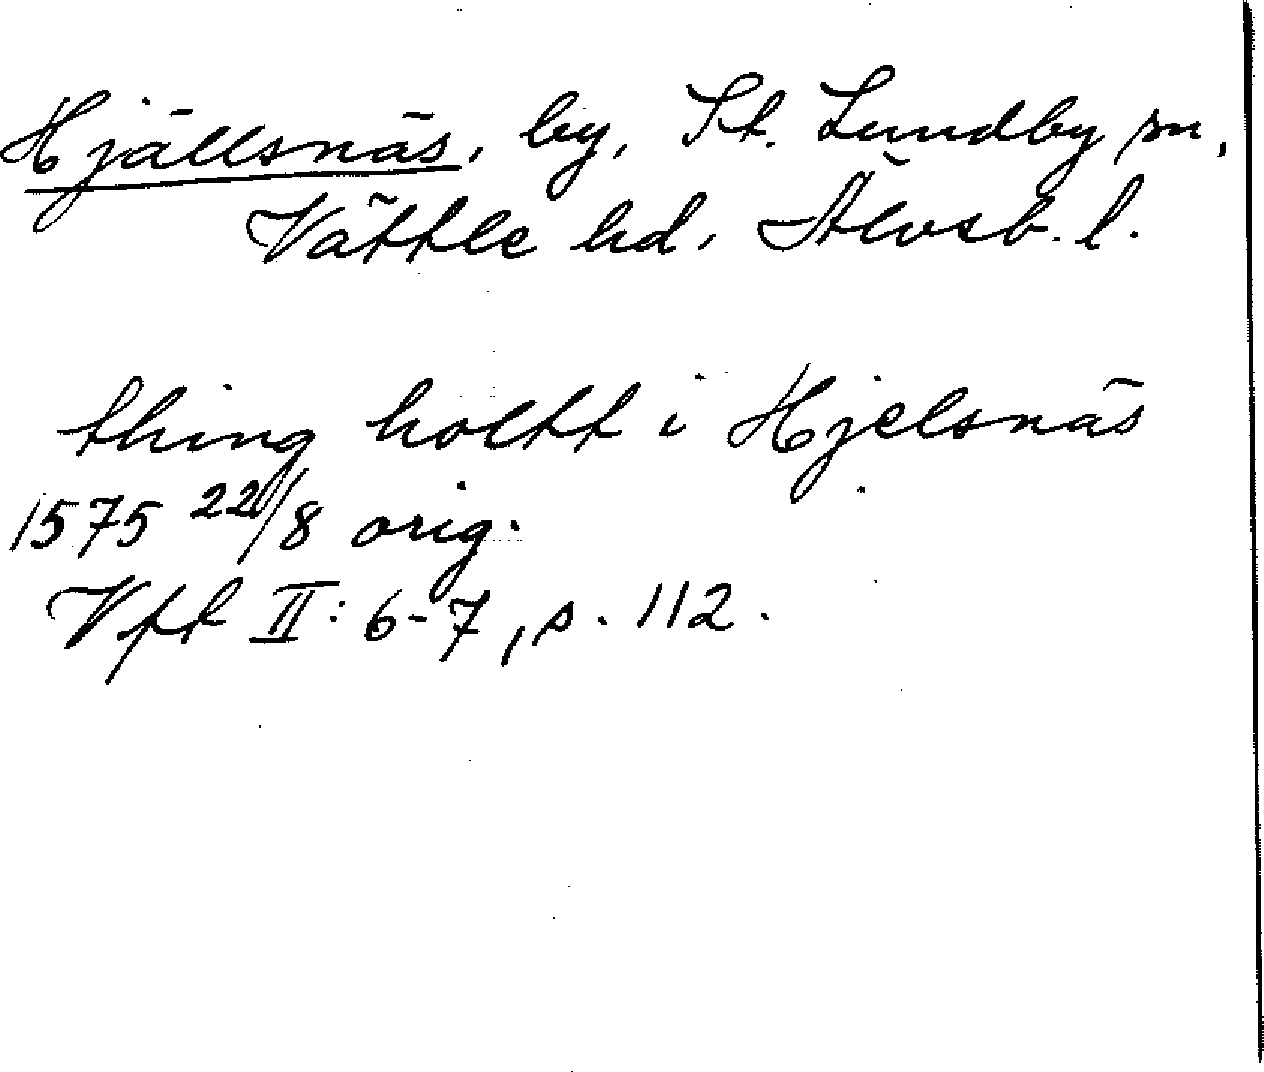 Hjällsnäs, by, St. Lundby sn,
Vättle hd, Älvsb. l.
thing holtt i Hjelsnäs
1575 22/8 orig.
Vft II: 6-7, s. 112.